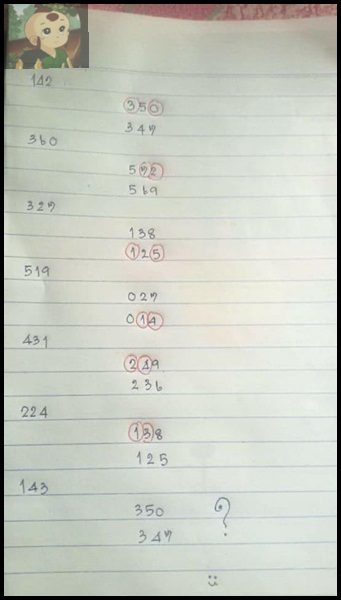 142
350
347
360
572
569
327
138
125
519
027
014
431
249
236
224
138
125
143
350 ?
347